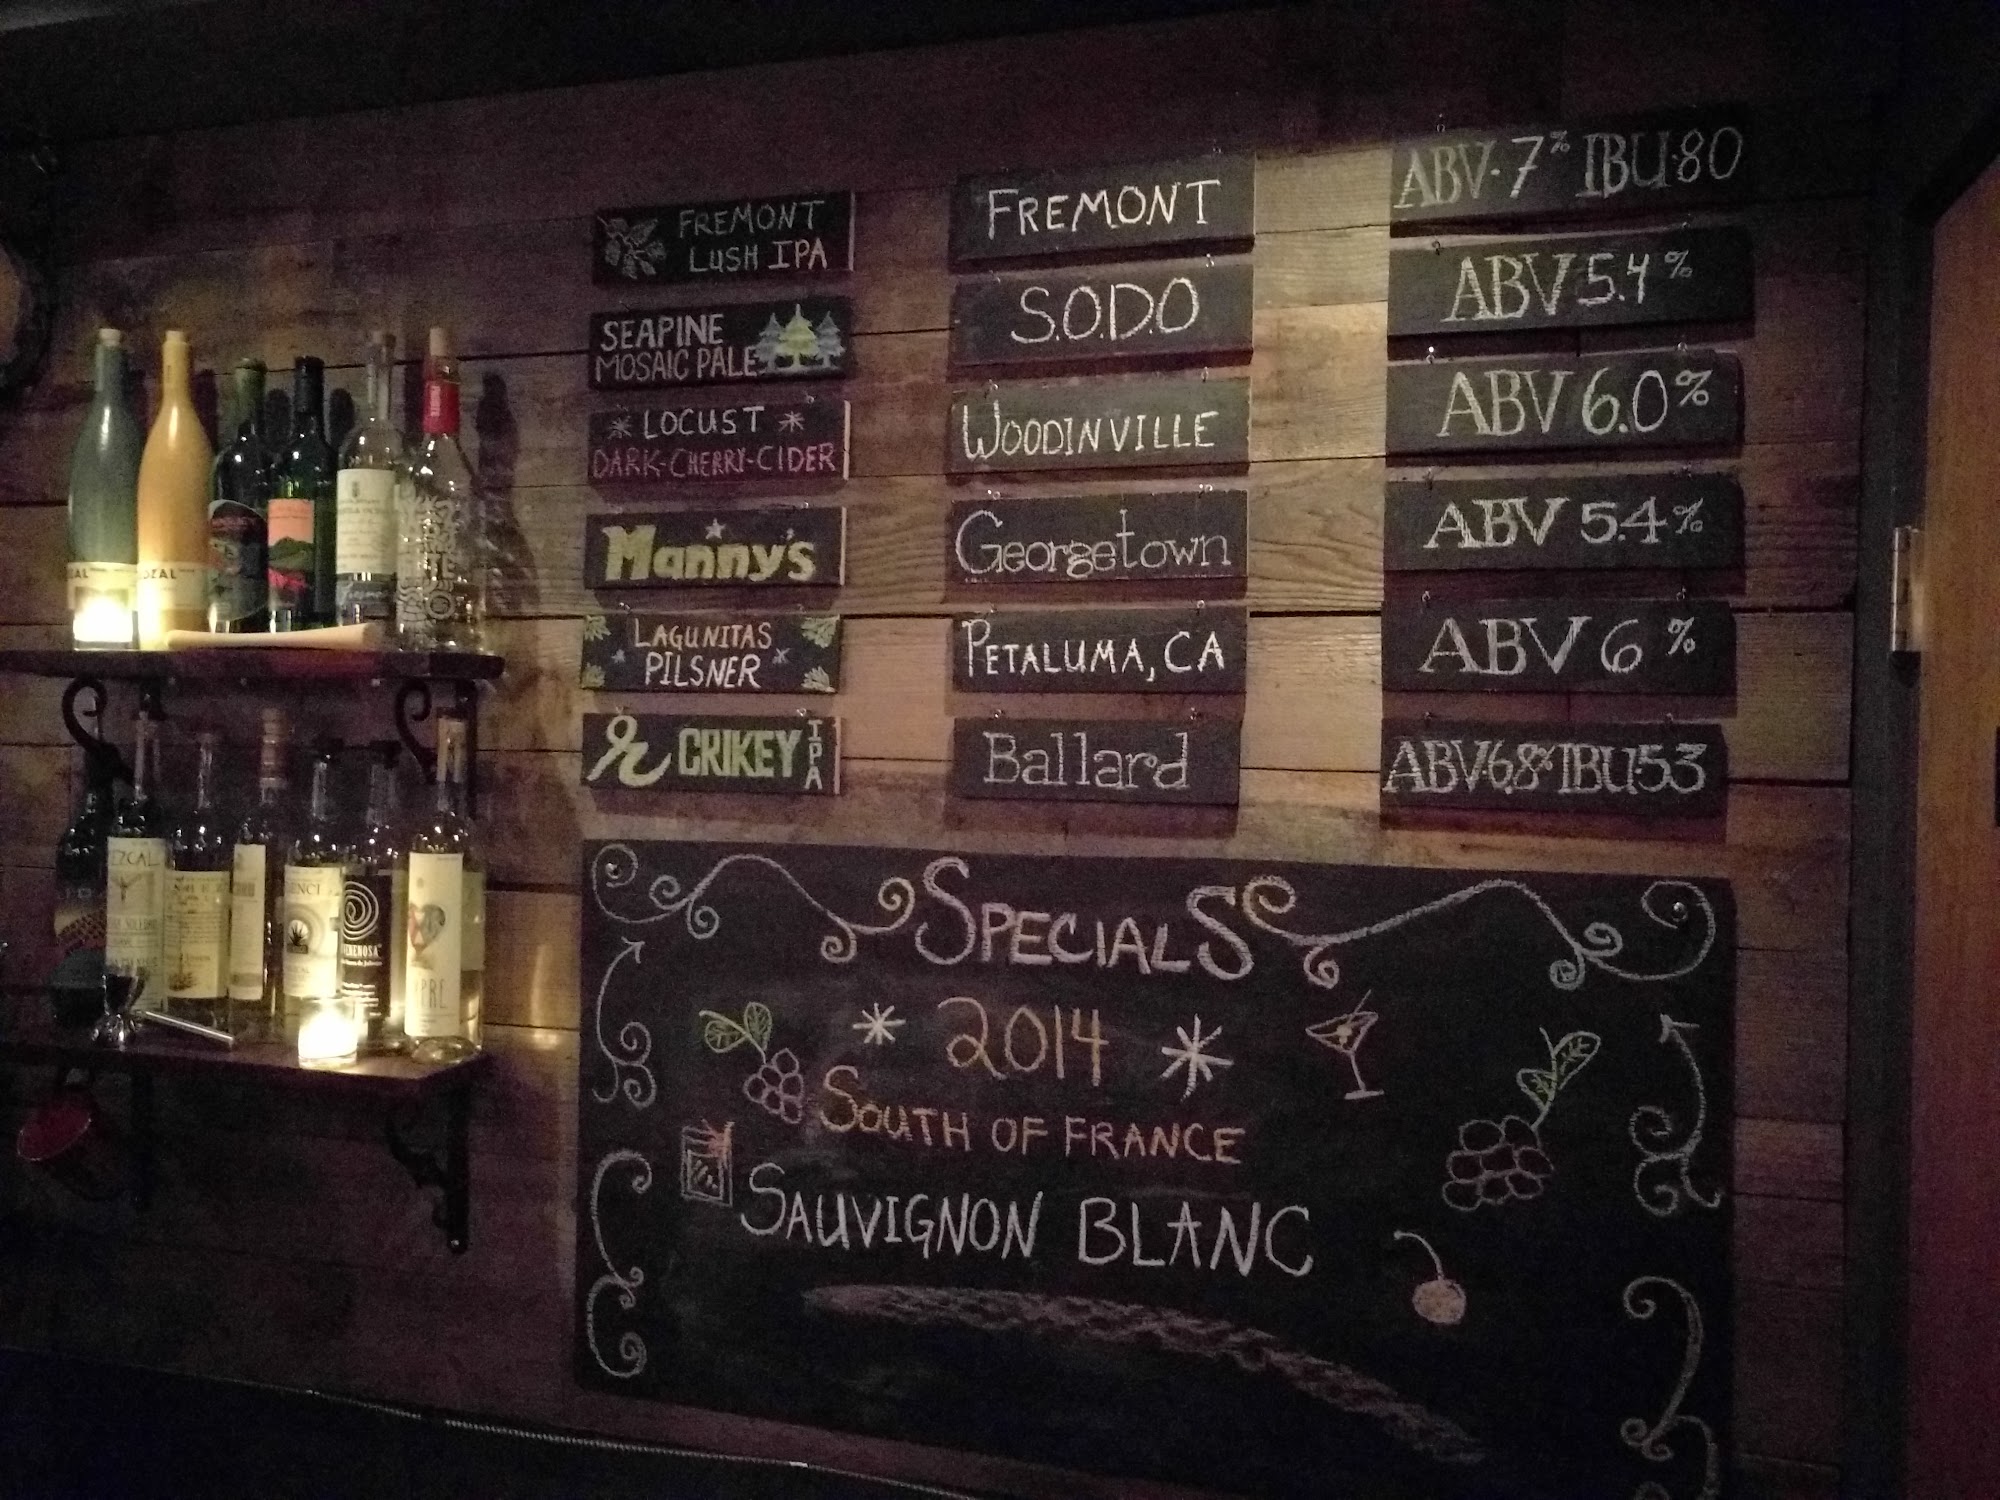 FREMONT
LUSH IPA
FREMONT
ABV·7% IBU·80
SEAPINE
MOSAIC PALE
S.O.D.O
ABV 5.4%
LOCUST
DARK-CHERRY-CIDER
WOODINVILLE
ABV 6.0%
Manny's
Georgetown
ABV 5.4%
LAGUNITAS
PILSNER
PETALUMA, CA
ABV 6%
CRIKEY IPA
Ballard
ABV·6.8% IBU·53
SPECIALS
2014
SOUTH OF FRANCE
SAUVIGNON BLANC